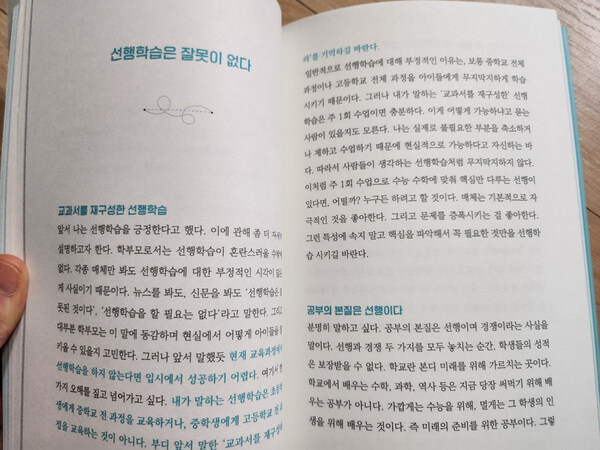 선행학습은 잘못이 없다
교과서를 재구성한 선행학습
앞서 나는 선행학습을 긍정한다고 했다. 이에 관해 좀 더 자세히
설명하고자 한다. 학부모로서는 선행학습이 혼란스러울 수밖에
없다. 각종 매체만 봐도 선행학습에 대한 부정적인 시각이 많은
게 사실이기 때문이다. 뉴스를 봐도, 신문을 봐도 ‘선행학습은
못된 것이다’, ‘선행학습을 할 필요는 없다’라고 말한다. 그리고
대부분 학부모는 이 말에 동감하며 현실에서 어떻게 아이들을
키울 수 있을지 고민한다. 그러나 앞서 말했듯 현재 교육과정에서
선행학습을 하지 않는다면 입시에서 성공하기 어렵다. 여기서
가지 오해를 짚고 넘어가고 싶다. 내가 말하는 선행학습은 초등
생에게 중학교 전 과정을 교육하거나, 중학생에게 고등학교 전
정을 교육하는 것이 아니다. 부디 앞서 말한 ‘교과서를 재구성
라’를 기억하길 바란다.
일반적으로 선행학습에 대해 부정적인 이유는, 보통 중학교 전체
과정이나 고등학교 전체 과정을 아이들에게 무지막지하게 학습
시키기 때문이다. 그러나 내가 말하는 ‘교과서를 재구성한’ 선행
학습은 주 1회 수업이면 충분하다. 이게 어떻게 가능하냐고 묻는
사람이 있을지도 모른다. 나는 실제로 불필요한 부분을 축소하거
나 제하고 수업하기 때문에 현실적으로 가능하다고 자신하는 바
다. 따라서 사람들이 생각하는 선행학습처럼 무지막지하지 않다.
이처럼 주 1회 수업으로 수능 수학에 맞춰 핵심만 다루는 선행이
있다면, 어떨까? 누구든 하려고 할 것이다. 매체는 기본적으로 자
극적인 것을 좋아한다. 그리고 문제를 증폭시키는 걸 좋아한다.
그런 특성에 속지 말고 핵심을 파악해서 꼭 필요한 것만을 선행학
습 시키길 바란다.
공부의 본질은 선행이다
분명히 말하고 싶다. 공부의 본질은 선행이며 경쟁이라는 사실을
말이다. 선행과 경쟁 두 가지를 모두 놓치는 순간, 학생들의 성적
은 보장받을 수 없다. 학교란 본디 미래를 위해 가르치는 곳이다.
학교에서 배우는 수학, 과학, 역사 등은 지금 당장 써먹기 위해 배
우는 공부가 아니다. 가깝게는 수능을 위해, 멀게는 그 학생의 인
생을 위해 배우는 것이다. 즉 미래의 준비를 위한 공부이다. 그렇